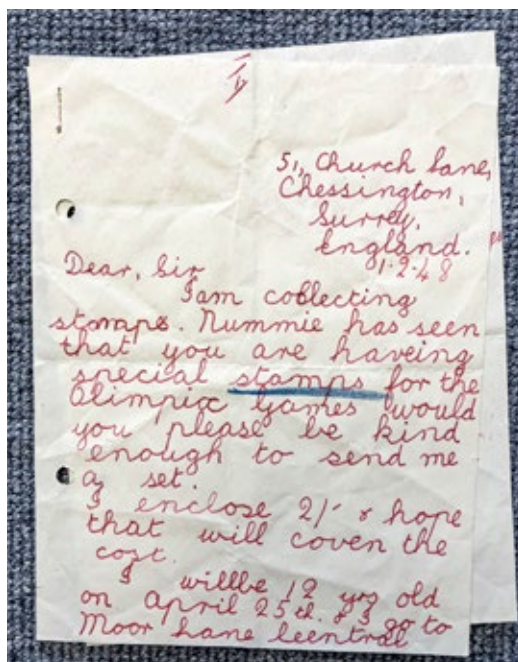 51, Church Lane,
Chessington,
Surrey,
England.
1.2.48
Dear, Sir
I am collecting
stamps. Mummie has seen
that you are haveing
special stamps for the
Olimpix Games would
you please be kind
enough to send me
a set.
I enclose 2/- & hope
that will coven the
cost.
I willbe 12 yrs old
on April 25th. & I go to
Moor Lane Central